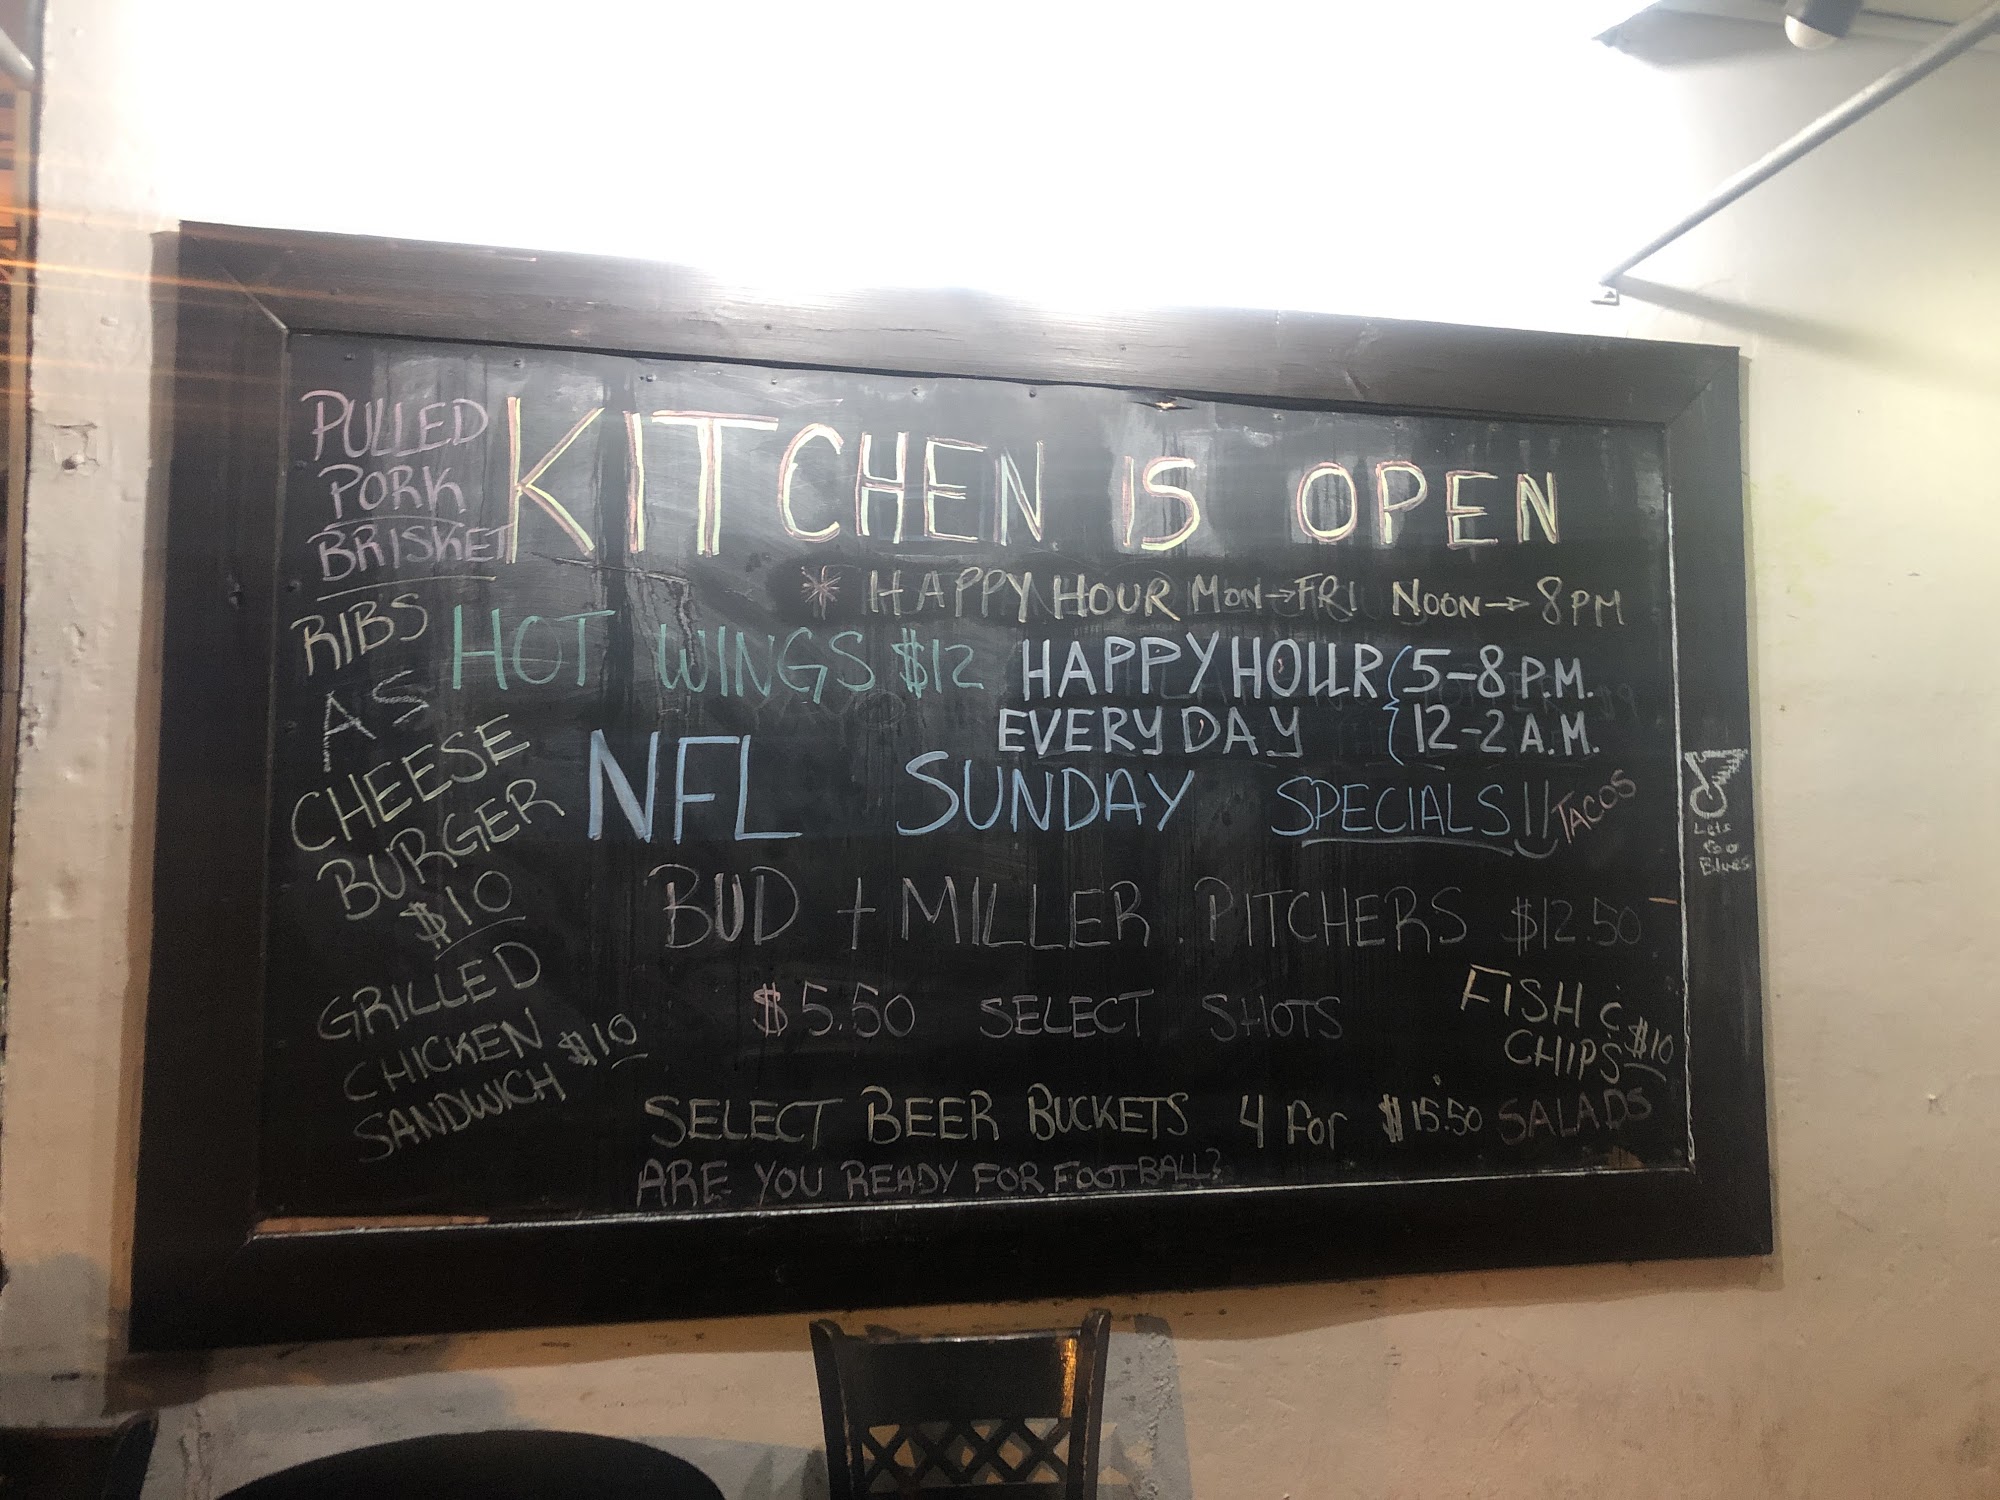 PULLED
PORK
BRISKET
RIBS
AS
CHEESE
BURGER
$10
GRILLED
CHICKEN
SANDWICH $10
KITCHEN IS OPEN
* HAPPY HOUR MON→FRI NOON→8PM
HOT WINGS $12
HAPPY HOUR 5-8 P.M.
EVERY DAY 12-2 A.M.
NFL SUNDAY SPECIALS!!
TACOS
BUD + MILLER PITCHERS $12.50
$5.50 SELECT SHOTS
FISH &
CHIPS $10
SELECT BEER BUCKETS 4 For $15.50
SALADS
ARE YOU READY FOR FOOTBALL?
Lets
Go
Blues